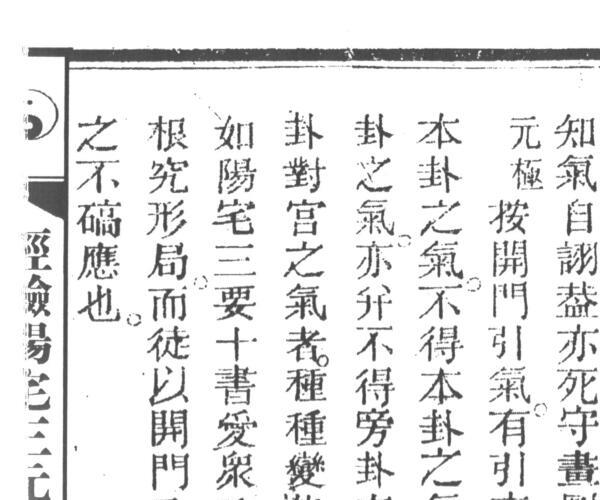 知氣自詡葢亦死守畫
元極
按開門引氣。有引
本卦之氣。不得本卦之
卦之氣。亦幷不得旁卦
卦對宮之氣者。種種變
如陽宅三要十書愛衆
根究形局。而徒以開門
之不碻應也。
經驗陽宅三元